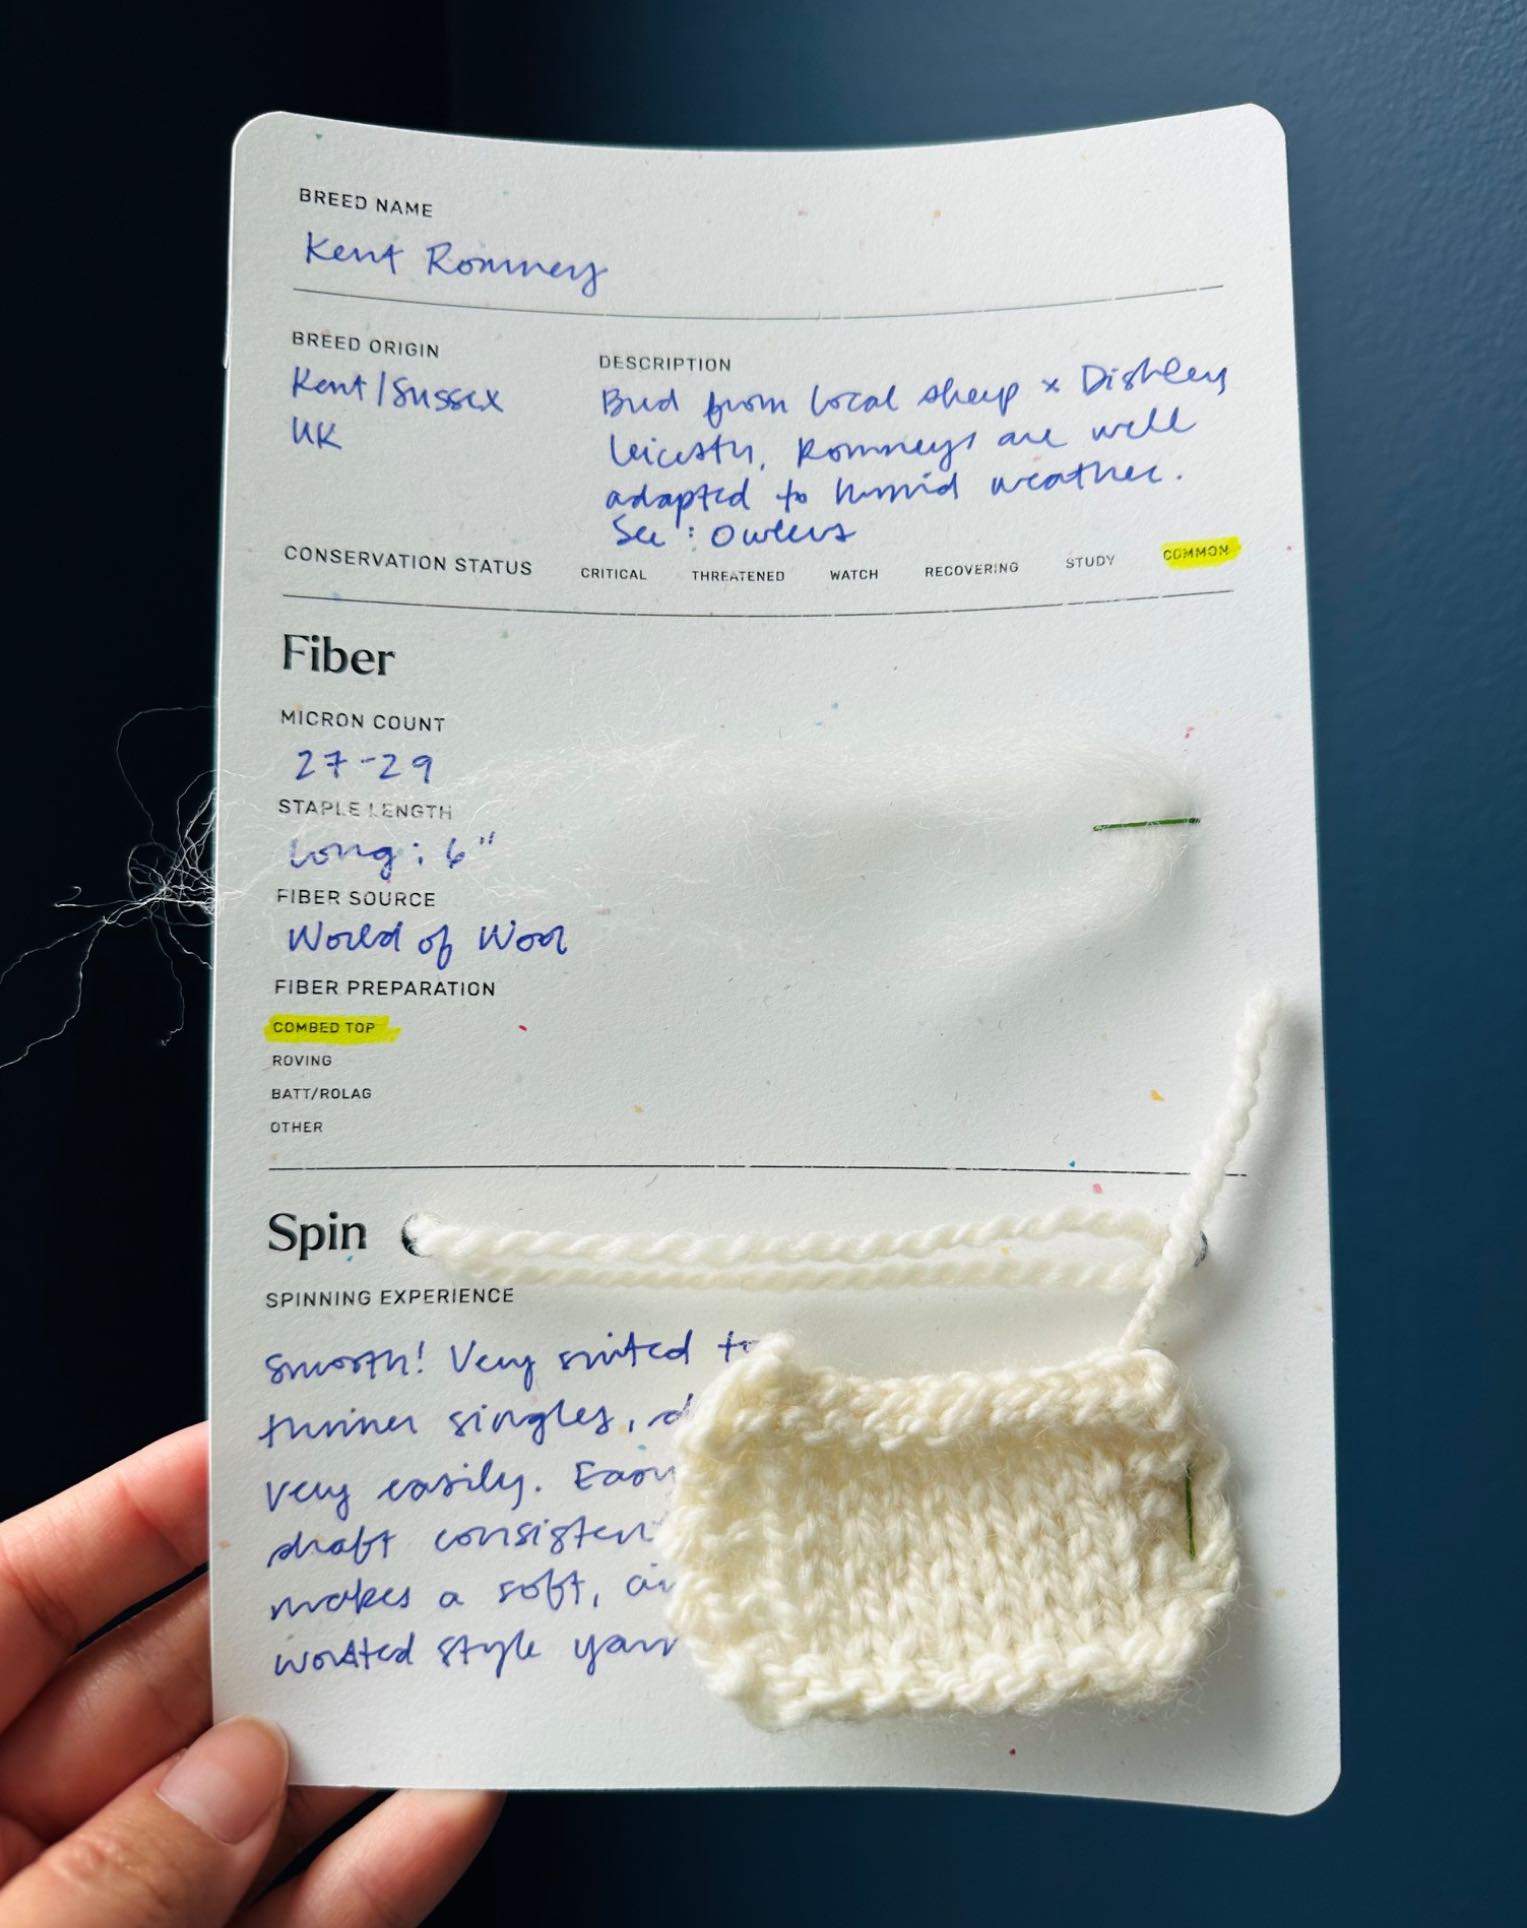 BREED NAME
Kent Romney
BREED ORIGIN
Kent/Sussex
UK
DESCRIPTION
Bred from local sheep x Dishley
Leicester, Romneys are well
adapted to humid weather.
See: Owlers
CONSERVATION STATUS CRITICAL THREATENED WATCH RECOVERING STUDY COMMON
Fiber
MICRON COUNT
27-29
STAPLE LENGTH
Long: 6"
FIBER SOURCE
World of Wool
FIBER PREPARATION
COMBED TOP
ROVING
BATT/ROLAG
OTHER
Spin
SPINNING EXPERIENCE
Smooth! Very suited to
thinner singles,
very easily. Easy
draft
makes a soft,
worsted style yarn